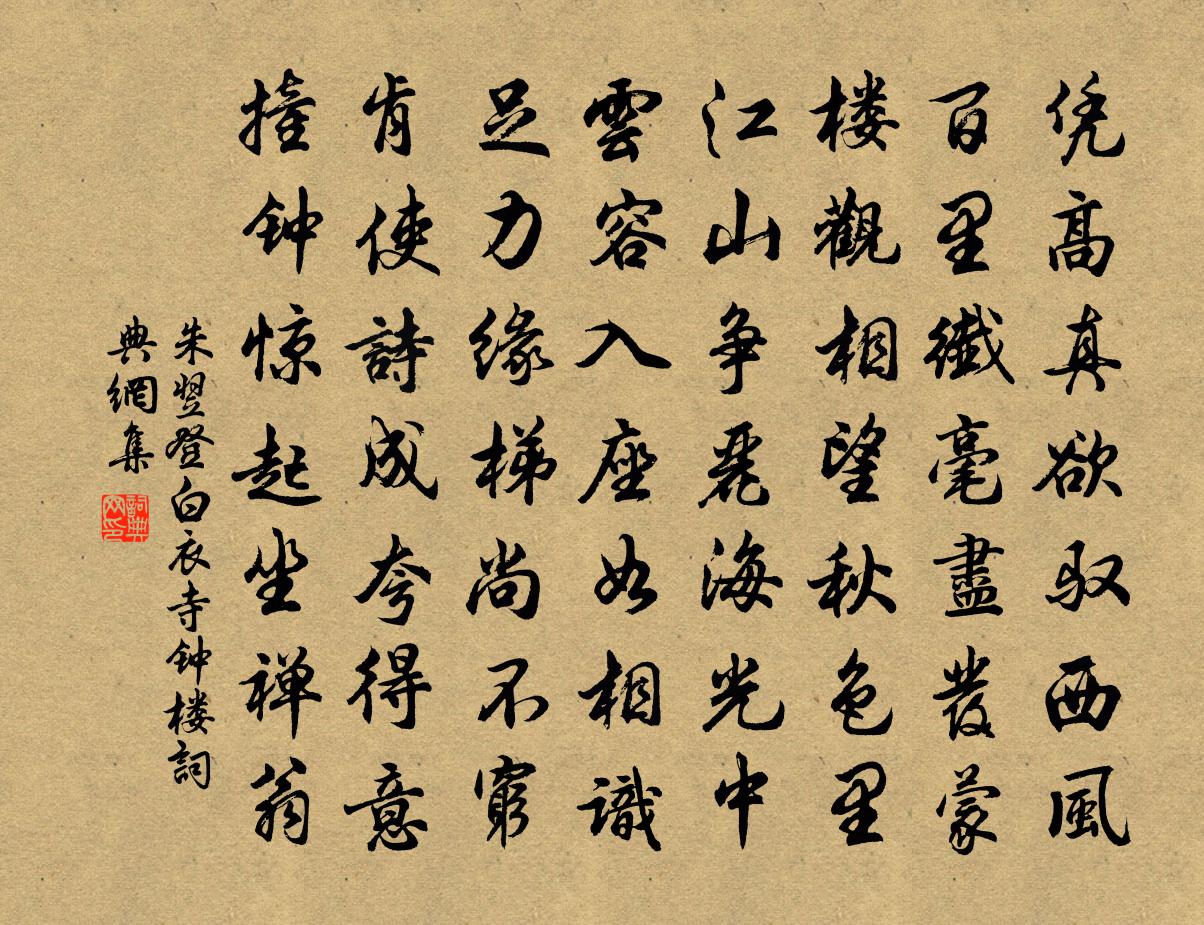 凭高真欲驭西風
百里纖毫盡發蒙
楼觀相望秋色里
江山争麗海光中
雲容入座如相識
足力缘梯尚不窮
肯使詩成夸得意
撞钟惊起坐禅翁
朱翌登白衣寺钟楼詞
典網集
詞典
网印